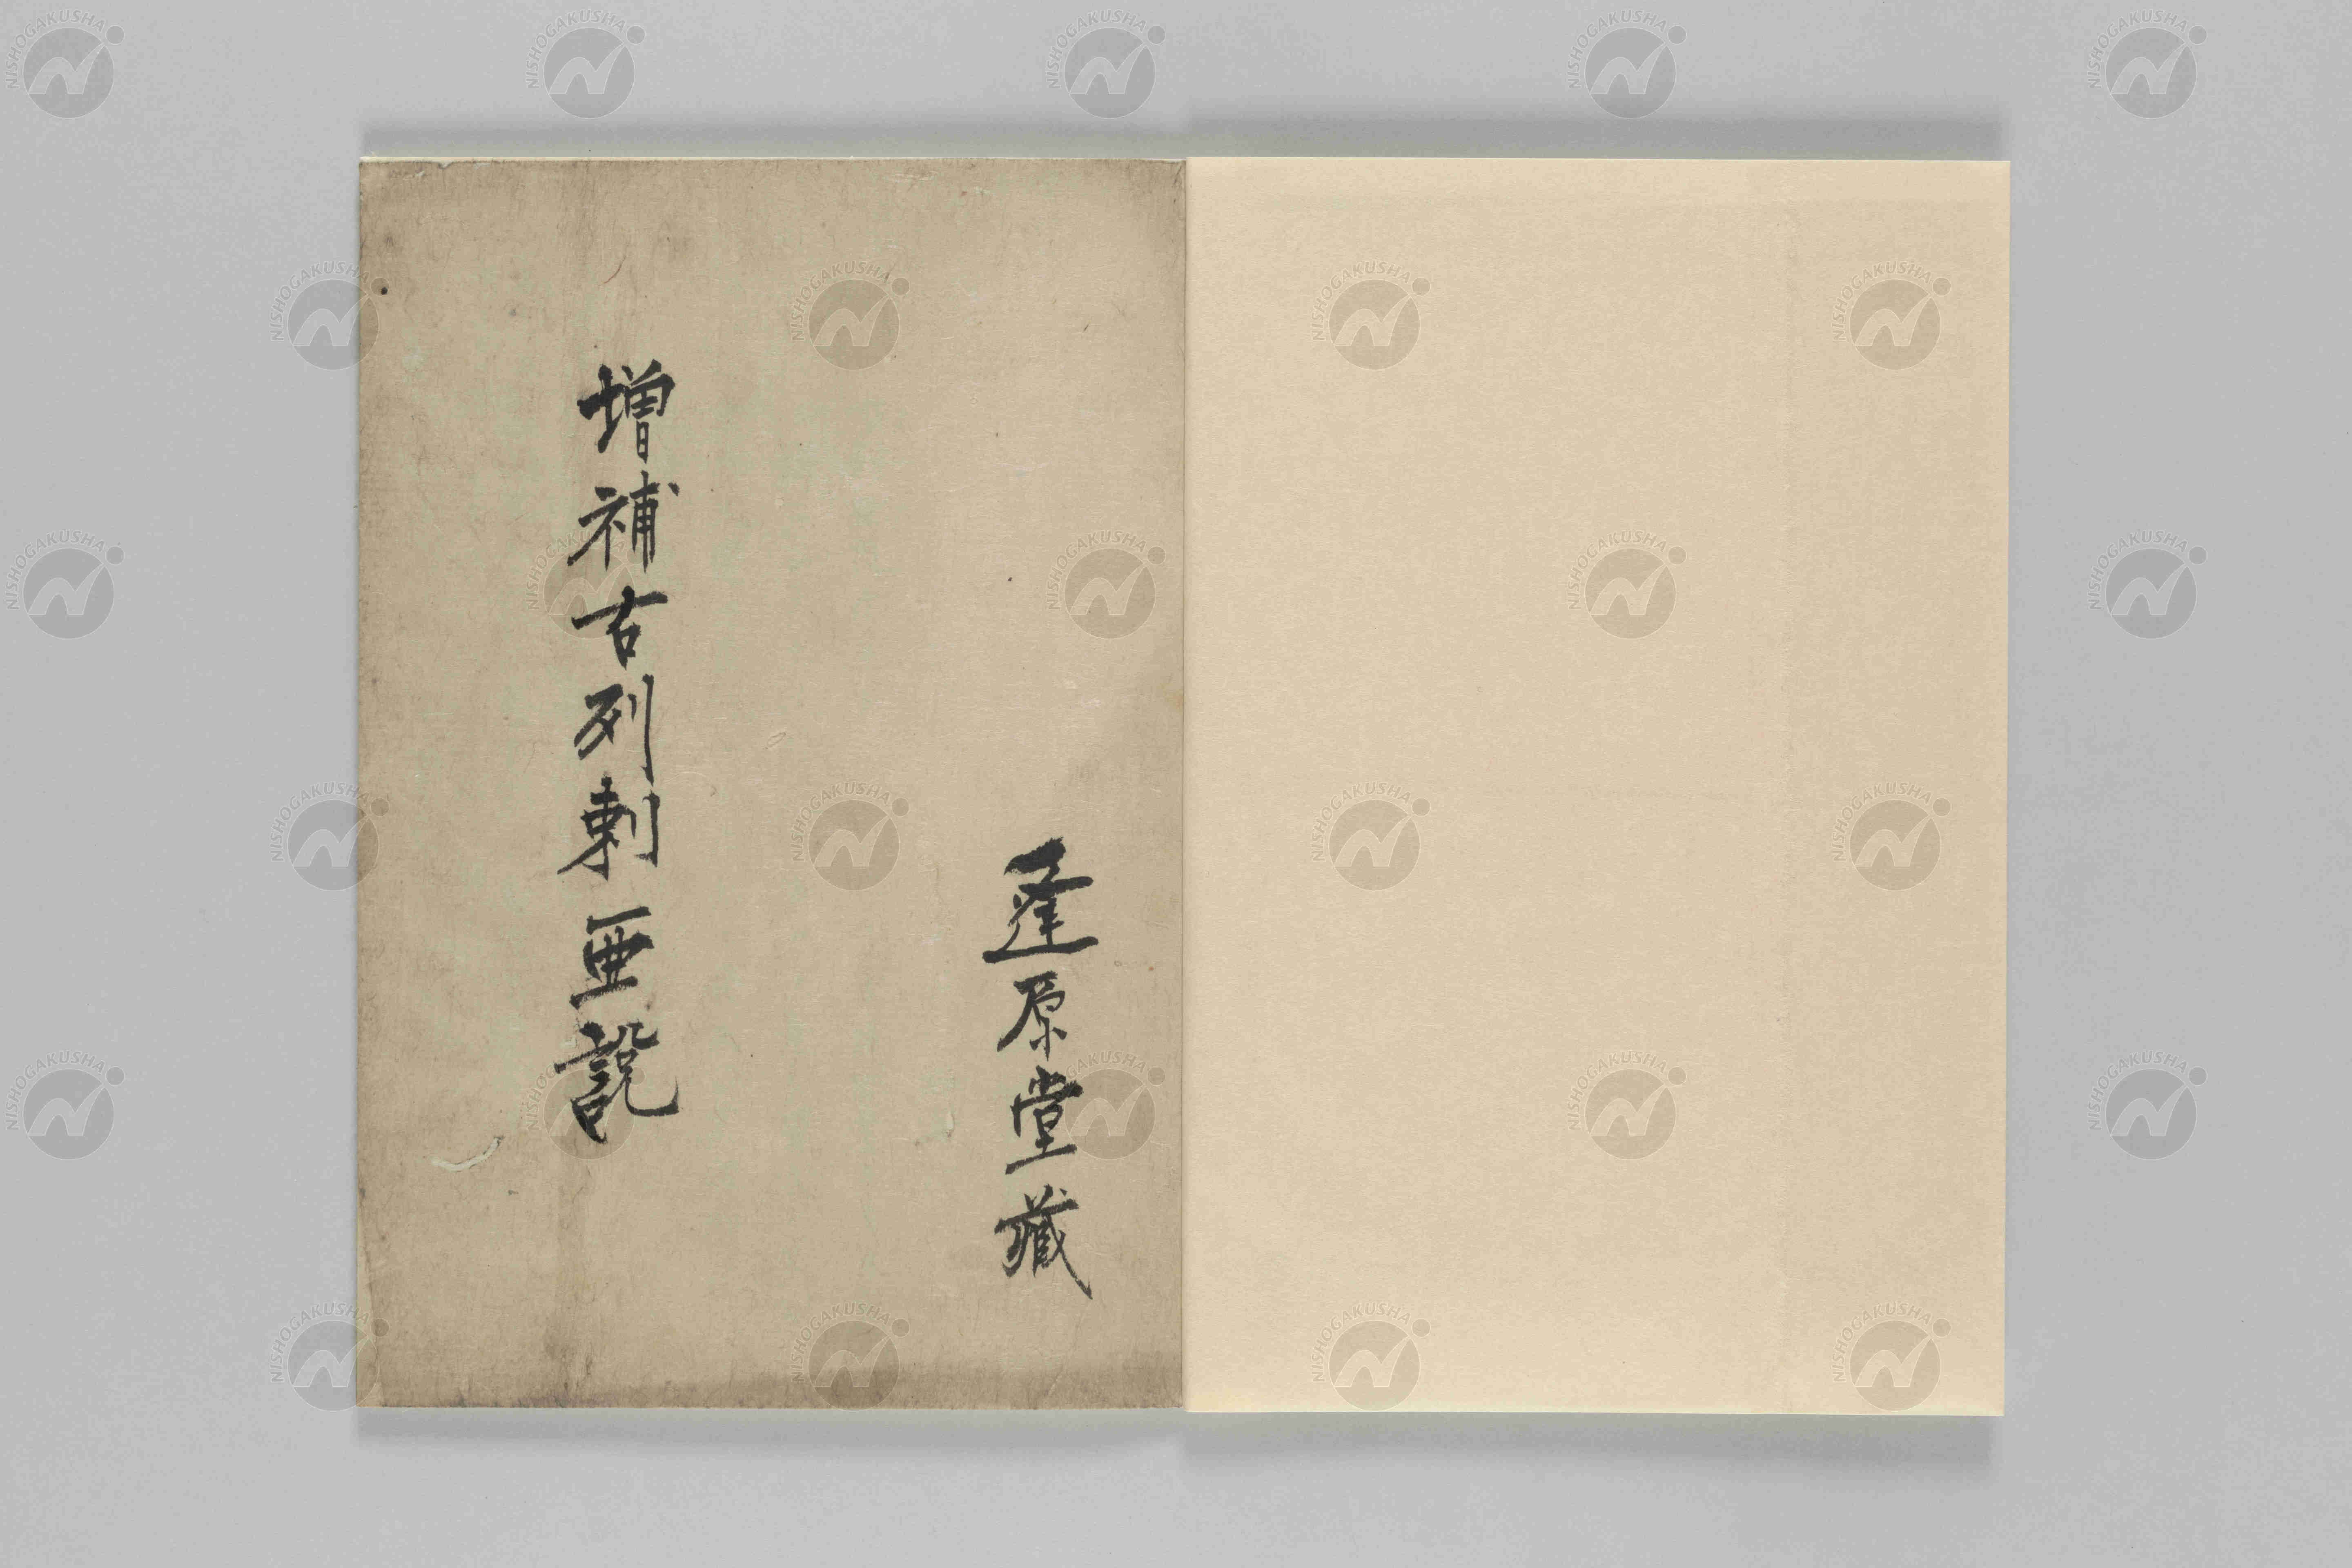 逢原堂藏
増補古列剌亜説
NISHOGAKUSHA